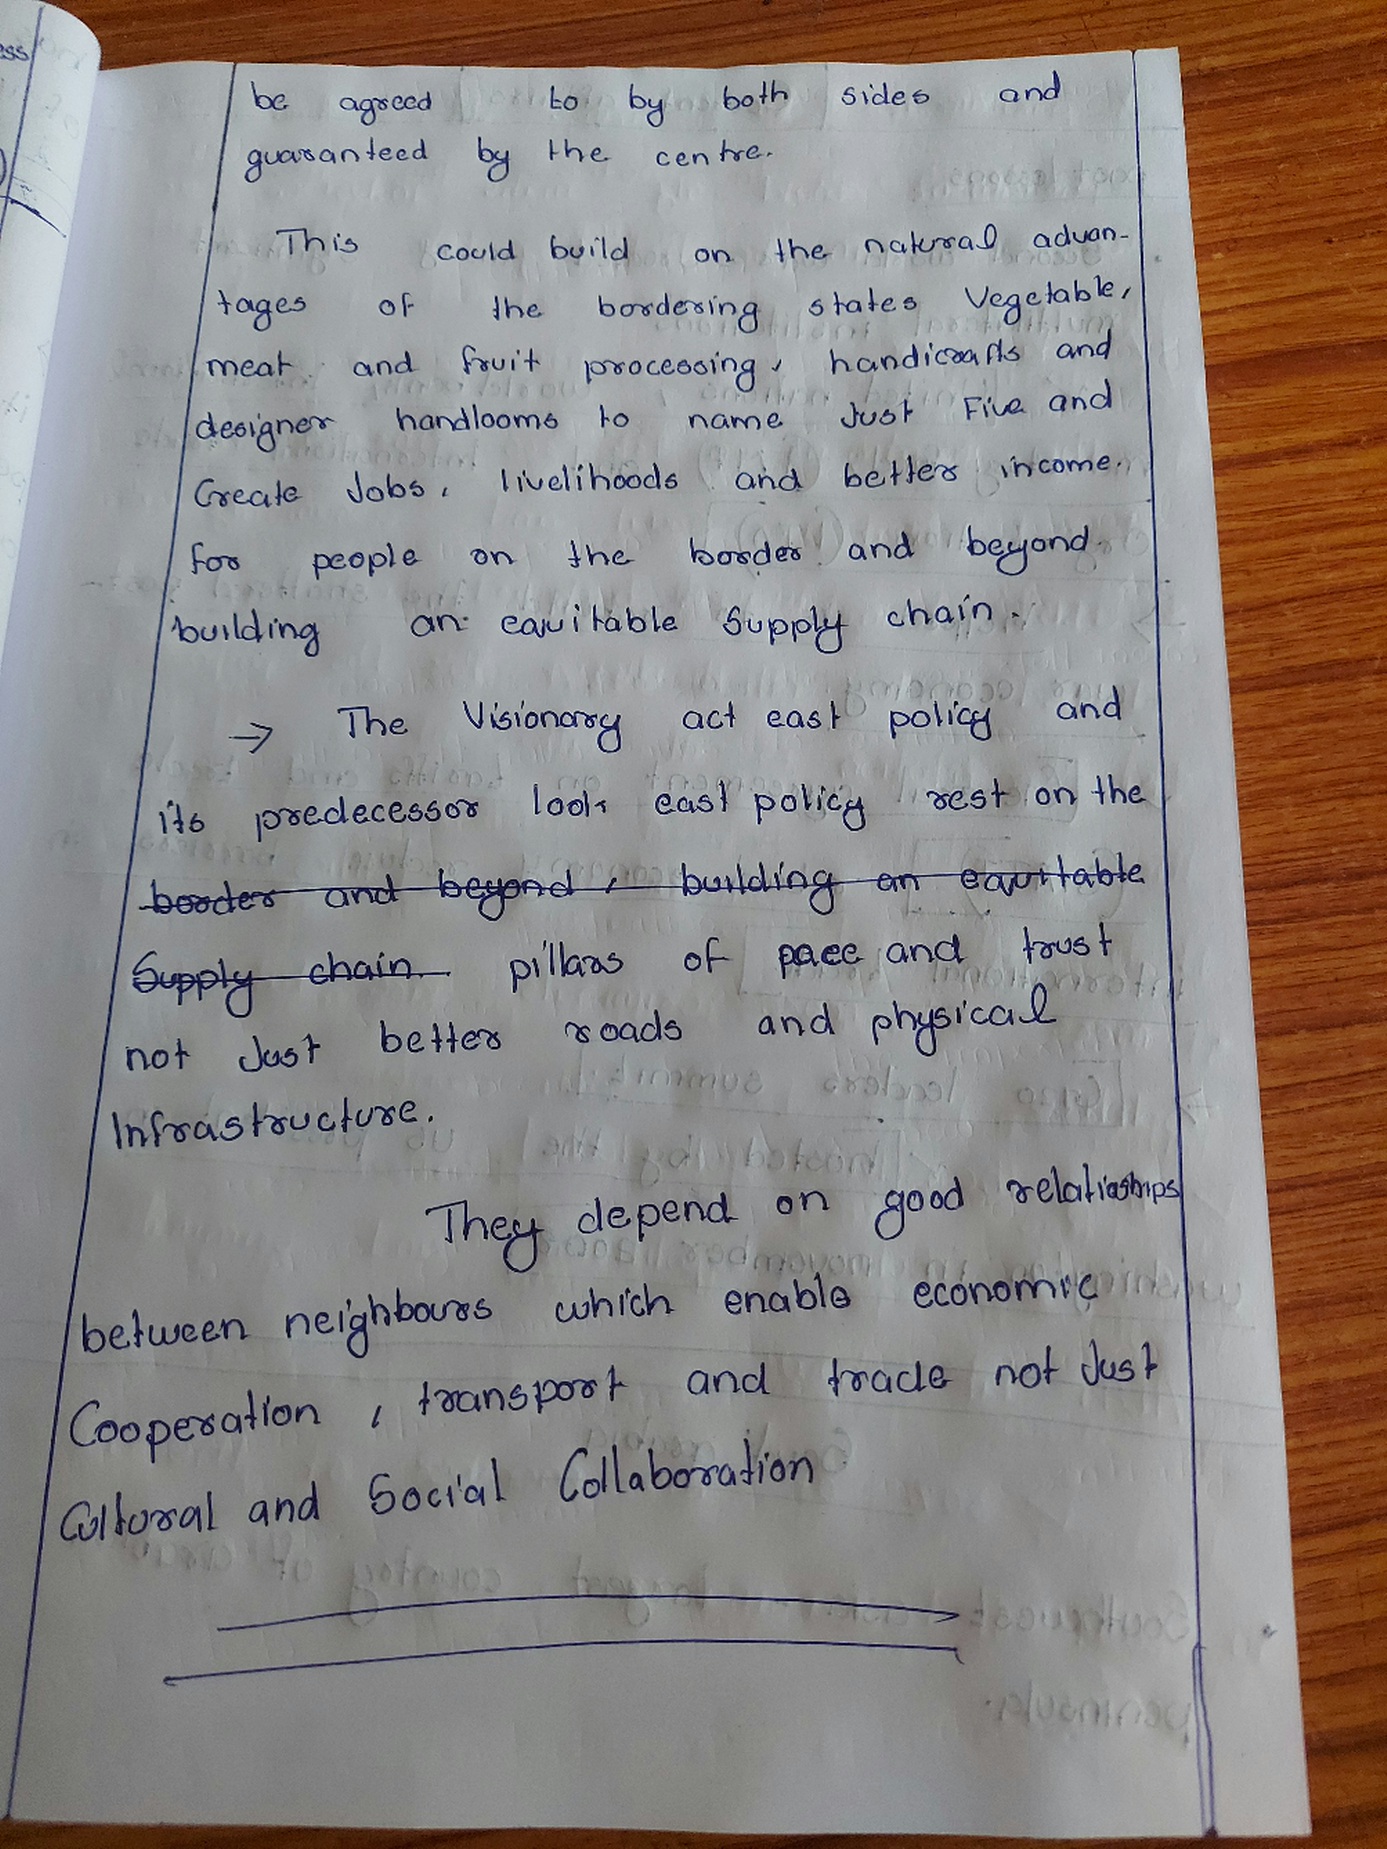 be agreed to by both sides and
guaranteed by the centre.
This could build on the natural advan-
tages of the bordering states Vegetable,
meat and fruit processing, handicrafts and
designer handlooms to name Just Five and
Create Jobs, livelihoods and better income.
for people on the border and beyond
building an equitable Supply chain.
→ The Visionary act east policy and
its predecessor look east policy rest on the
border and beyond, building an equitable
Supply chain. pillars of paec and trust
not Just better roads and physical
Infrastructure.
They depend on good relatioships
between neighbours which enable economic
Cooperation, transport and trade not Just
Cultural and Social Collaboration